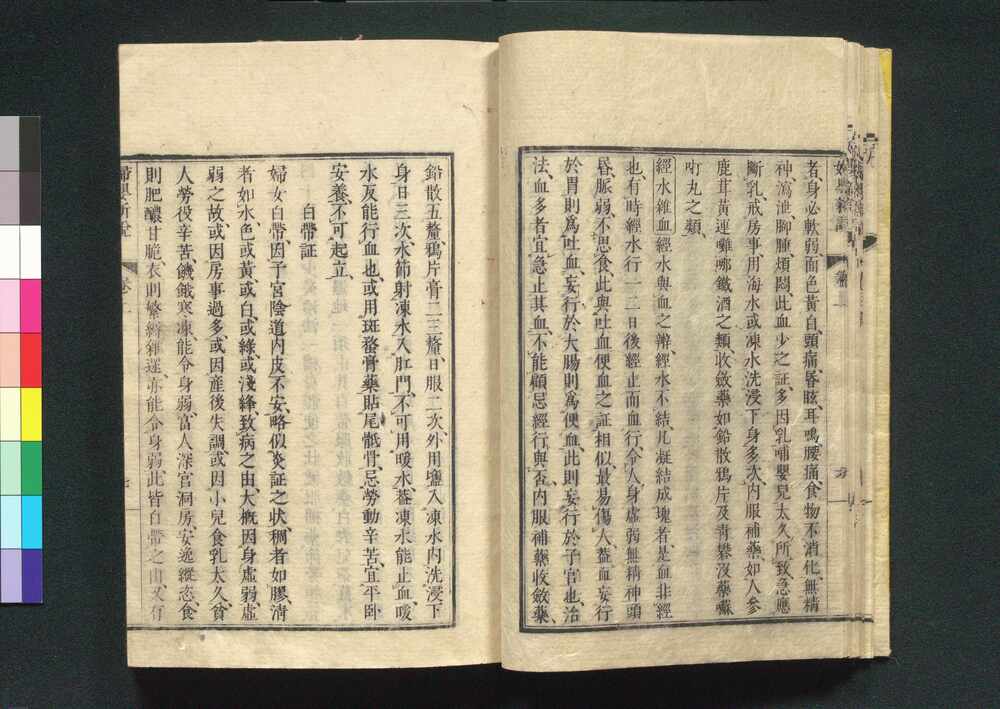 者、身必軟弱、面色黃白、頭痛、昏眩、耳鳴、腰痛、食物不消化、無精
神、瀉泄、脚腫、煩悶、此血少之証、多因乳哺嬰兒太久所致、急應
斷乳、戒房事、用海水或凍水洗浸下身多次、內服補藥、如人參
鹿茸黃連囇哪鐵酒之類、收斂藥如鉛散鴉片及青礬沒藥囌
吖丸之類、
經水雜血 經水與血之辨、經水不結、凡凝結成塊者、是血非經
也、有時經水行一二日後、經止而血行、令人身虛弱、無精神、頭
昏、脈弱、不思食、此與吐血便血之証相似、最易傷人、蓋血妄行
於胃、則爲吐血、妄行於大腸、則爲便血、此則妄行於子宮也、治
法、血多者、宜急止其血、不能顧忌經行與否、內服補藥收斂藥、
鉛散五釐、鴉片膏二三釐、日服二次、外用鹽入凍水內、洗浸下
身、日三次、水節射凍水入肛門、不可用暖水、蓋凍水能止血、暖
水反能行血也、或用斑蝥膏藥貼尾骶骨、忌勞動辛苦、宜平臥
安養、不可起立、
白帶証
婦女白帶、因子宮陰道內皮不安、略似炎証之狀、稠者如膠、淸
者如水、色或黃、或白、或綠、或淺絳、致病之由、大概因身虛弱、虛
弱之故、或因房事過多、或因產後失調、或因小兒食乳太久、貧
人勞役辛苦、饑餓寒凍、能令身弱、富人深宮洞房、安逸縱恣、食
則肥醲甘脆、衣則繁縟雜遝、亦能令身弱、此皆白帶之由、又有
婦嬰新說